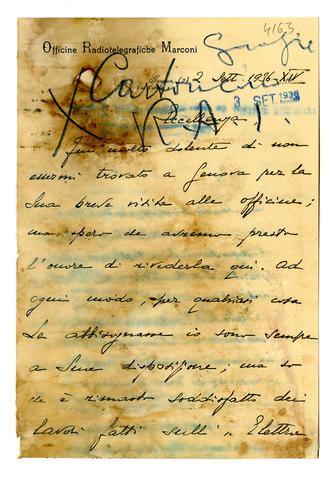 4163
Officine Radiotelegrafiche Marconi
Grazie
2 Sett. 1936-XIV
3 SET. 1936
R.A.I.
Eccellenza
Fui molto dolente di non
essermi trovato a Genova per la
Sua breve visita alle officine;
ma spero che avremo presto
l'onore di rivederla qui. Ad
ogni modo, per qualsiasi cosa
Le abbisognasse io sono sempre
a Sua disposizione; ma so
che è rimasto soddisfatto dei
lavori fatti sull' "Elettra"